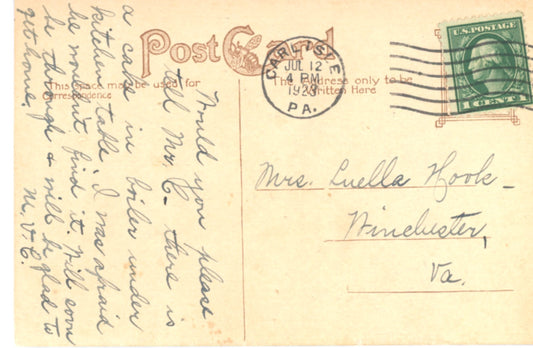 Post Card
This space may be used for
Correspondence
The address only to be
Written Here
CARLISLE
JUL 12
4 PM
1923
PA.
U.S. POSTAGE
1 CENT 1
Would you please
tell Mr. C- there is
a cake in boiler under
kitchen table I was afraid
he wouldn't find it. Will soon
be through & will be glad to
get home.
M. V. C.
Mrs. Luella Hook-
Winchester,
Va.